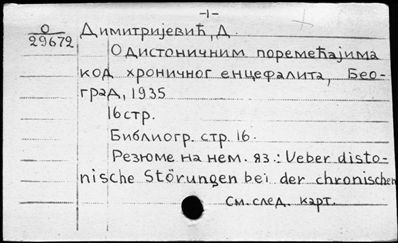 -1-
О
29672
Димитријевић, Д.
О дистоничним поремећајима
код хроничног енцефалита, Бео-
град, 1935
16 стр.
Библиогр. стр. 16.
Резюме на нем. яз.: Ueber disto-
nische Störungen bei der chronischen
См. след. карт.